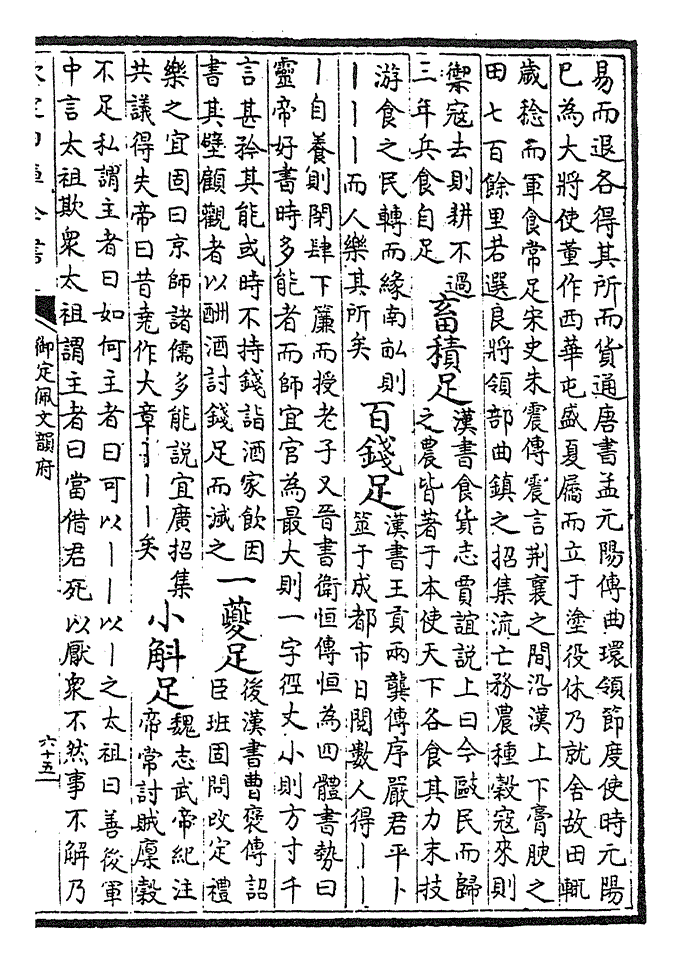 易而退各得其所而貨通唐書孟元陽傳曲環領節度使時元陽
巳為大將使董作西華屯盛夏屩而立于塗役休乃就舍故田輒
歲稔而軍食常足宋史朱震傳震言荆襄之間沿漢上下膏腴之
田七百餘里若選良將領部曲鎮之招集流亡務農種穀寇來則
禦寇去則耕不過
三年兵食自足
畜積足
漢書食貨志賈誼説上曰今敺民而歸
之農皆著于本使天下各食其力末技
游食之民轉而緣南畝則
丨丨丨而人樂其所矣
百錢足
漢書王貢兩龔傳序嚴君平卜
筮于成都市日閱數人得丨丨
丨自養則閉肆下簾而授老子又晉書衛恒傳恒為四體書勢曰
靈帝好書時多能者而師宜官為最大則一字徑丈小則方寸千
言甚矜其能或時不持錢詣酒家飲因
書其壁顧觀者以酬酒討錢足而滅之
一夔足
後漢書曹褒傳詔
臣班固問改定禮
樂之宜固曰京師諸儒多能説宜廣招集
共議得失帝曰昔堯作大章丨丨丨矣
小斛足
魏志武帝紀注
帝常討賊廩穀
不足私謂主者曰如何主者曰可以丨丨以丨之太祖曰善後軍
中言太祖欺衆太祖謂主者曰當借君死以厭衆不然事不解乃
御定佩文韻府
六十五